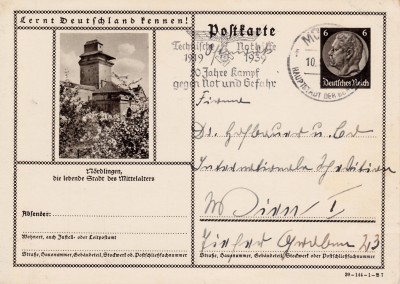 Lernt Deutschland kennen!
Postkarte
Technische Nothilfe
1919 1939
20 Jahre Kampf
gegen Not und Gefahr
MÜ
10.
HAUPTSTADT DER BE
6 6
Deutsches Reich
Nördlingen,
die lebende Stadt des Mittelalters
Firma
Dr. Hofbauer u. Co
Internationale Spedition
Wien I
Tiefer Graben 23
Absender:
Wohnort, auch Zustell- oder Leitpostamt
Straße, Hausnummer, Gebäudeteil, Stockwerk od. Postschließfachnummer
Straße, Hausnummer, Gebäudeteil, Stockwerk oder Postschließfachnummer
39-144-1-B7